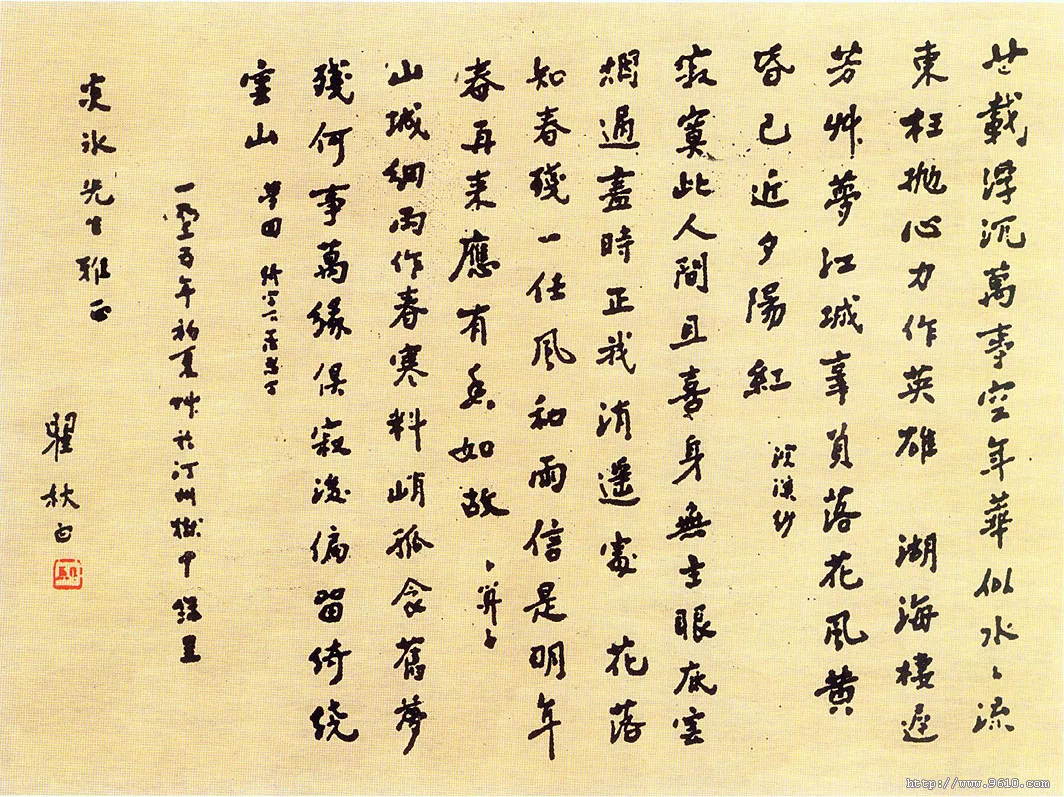 廿載浮沉萬事空年華似水〻流
東枉拋心力作英雄 湖海棲遲
芳艸夢江城辜負落花風黃
昏已近夕陽紅 浣溪紗
寂寞此人間且喜身無主眼底雲
烟過盡時正我逍遙處 花落
知春殘一任風和雨信是明年
春再來應有香如故 卜算子
山城細雨作春寒料峭孤衾舊夢
殘何事萬緣俱寂後偏留綺繞
雲山 夢回
一九三五年初夏艸於汀州獄中 錄呈
炎冰先生雅正
瞿秋白
http://www.9610.com